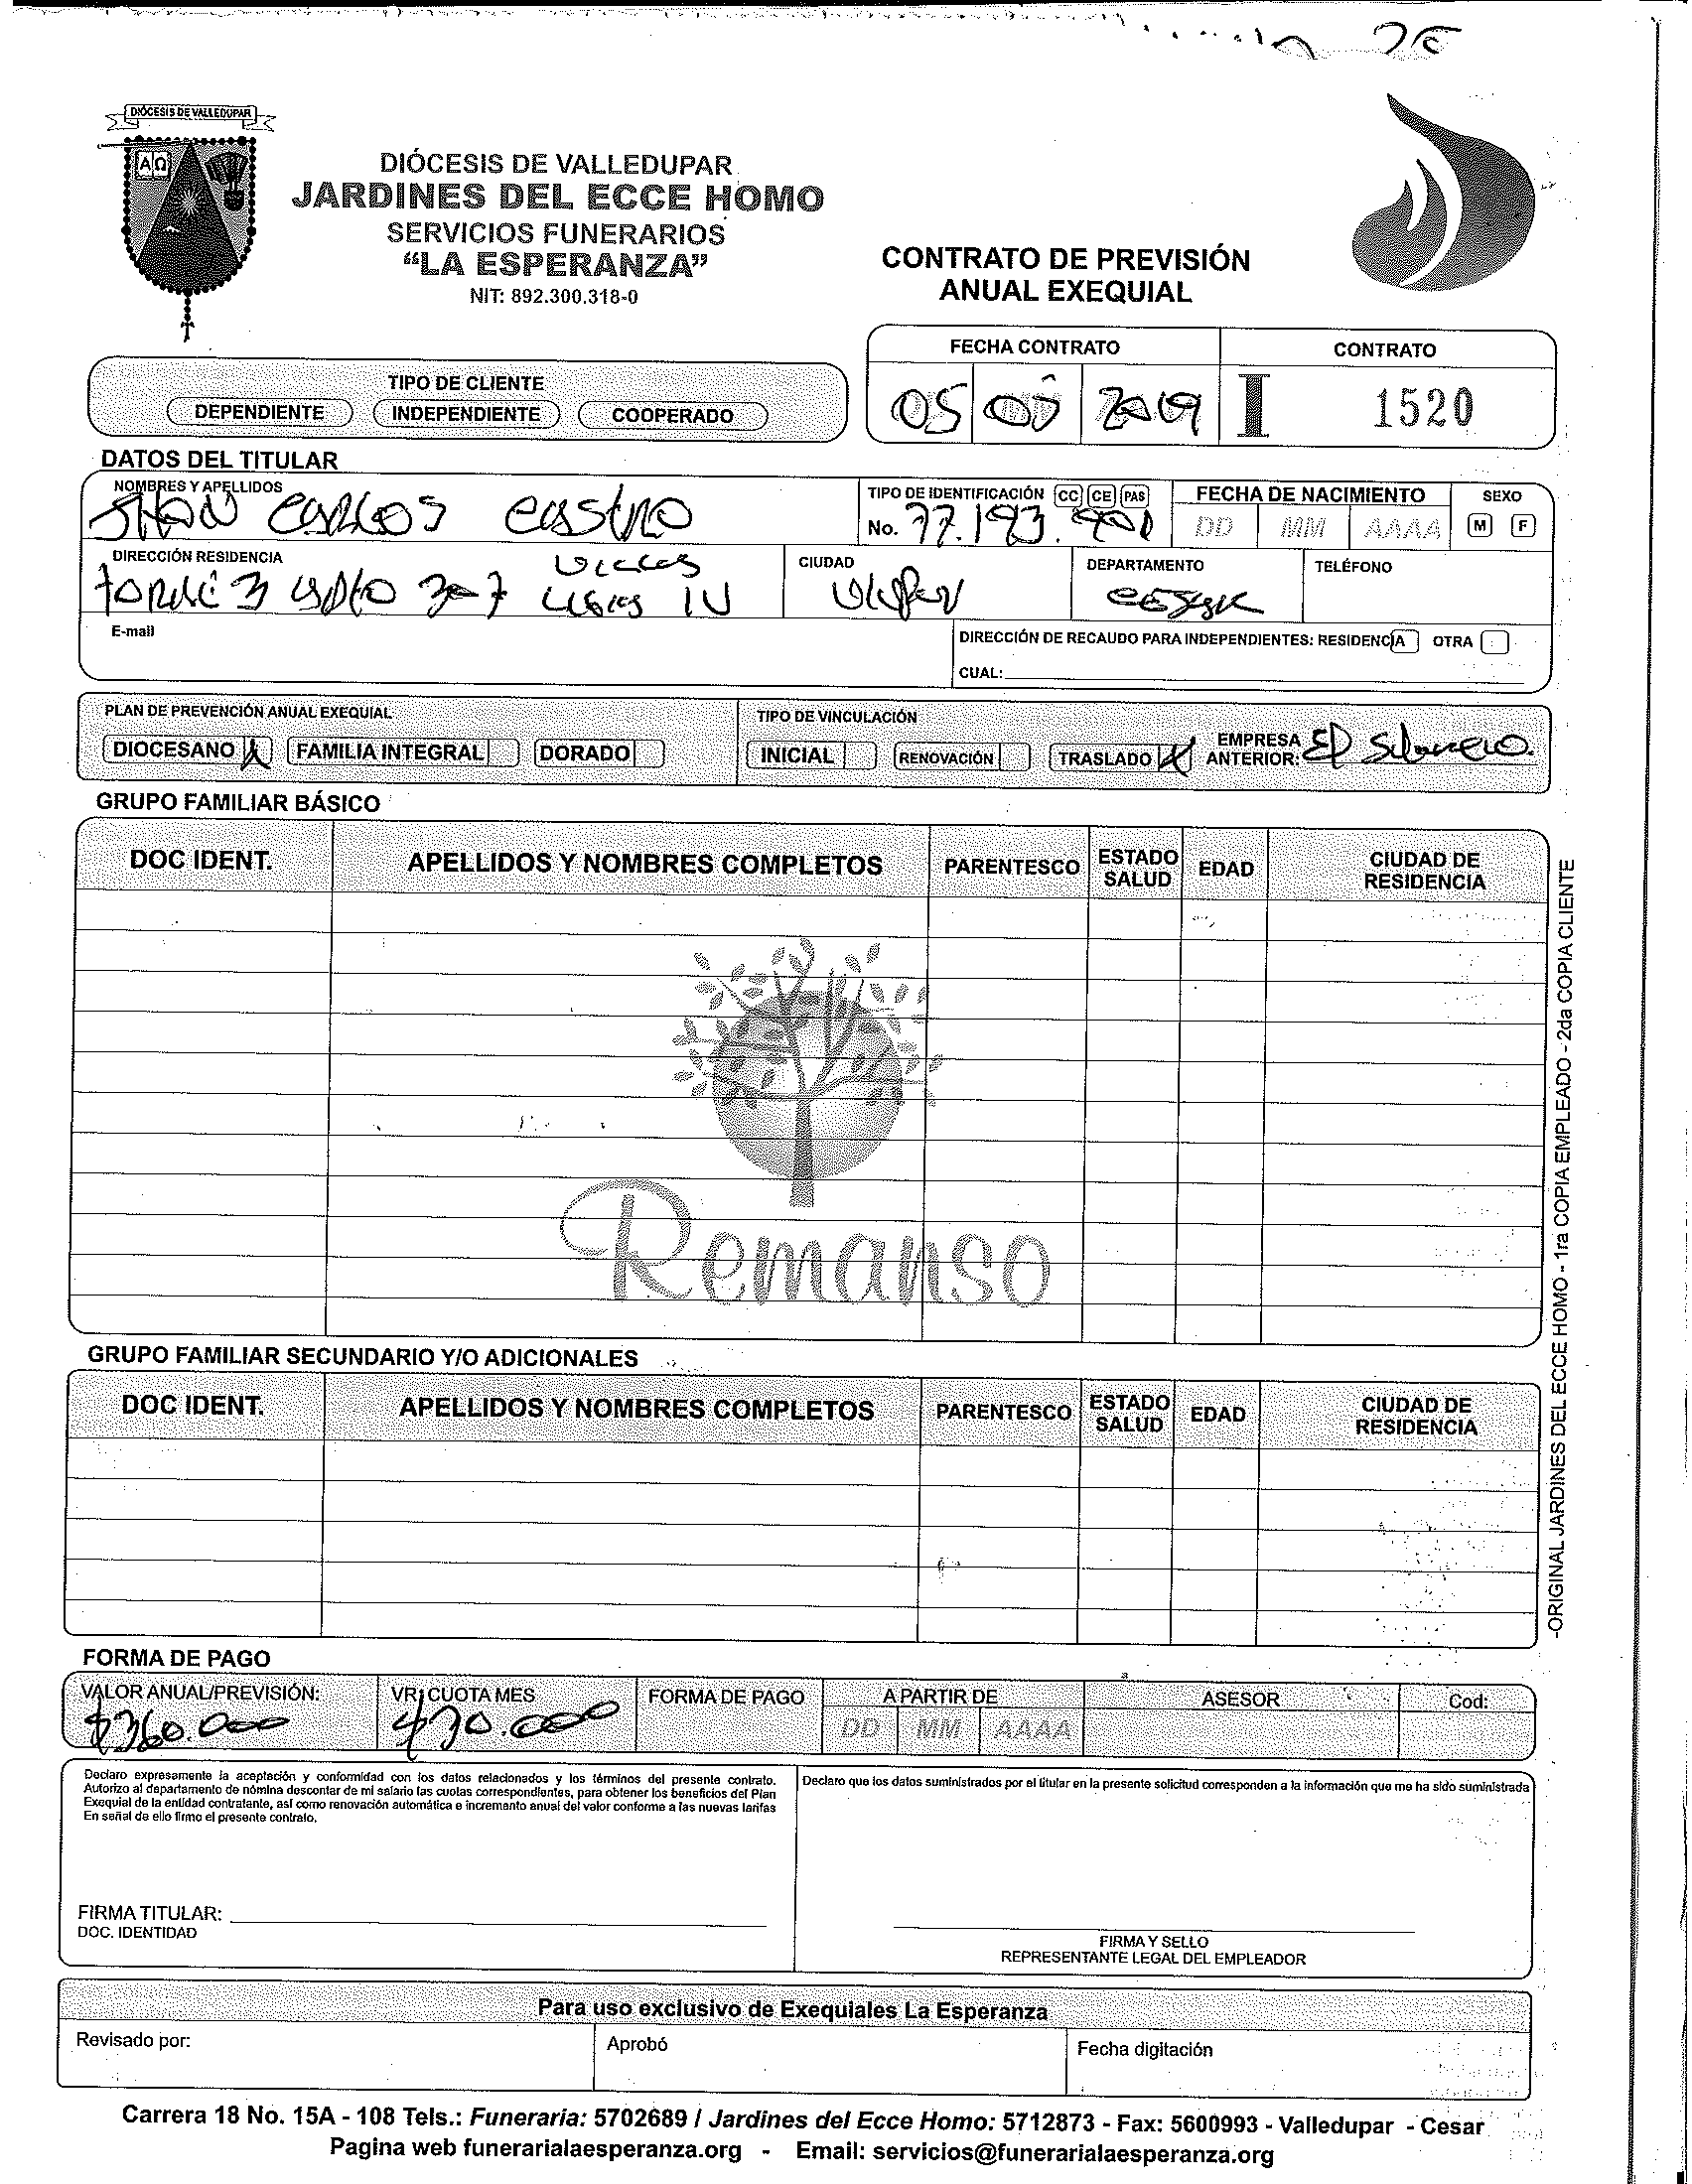 DIÓCESIS DE VALLEDUPAR
ΑΩ
DIÓCESIS DE VALLEDUPAR
JARDINES DEL ECCE HOMO
SERVICIOS FUNERARIOS
“LA ESPERANZA”
NIT: 892.300.318-0
CONTRATO DE PREVISIÓN
ANUAL EXEQUIAL
FECHA CONTRATO CONTRATO
05 2019 I 1520
TIPO DE CLIENTE
DEPENDIENTE INDEPENDIENTE COOPERADO
DATOS DEL TITULAR
NOMBRES Y APELLIDOS
JHON CARLOS CASTRO
TIPO DE IDENTIFICACIÓN CC CE PAS
No. 77.193.901
FECHA DE NACIMIENTO
DD MM AAAA
SEXO
M F
DIRECCIÓN RESIDENCIA
TORRE 3 APTO 307
CIUDAD
DEPARTAMENTO
TELÉFONO
E-mail
DIRECCIÓN DE RECAUDO PARA INDEPENDIENTES: RESIDENCIA OTRA
CUAL:
PLAN DE PREVENCIÓN ANUAL EXEQUIAL
DIOCESANO X FAMILIA INTEGRAL DORADO
TIPO DE VINCULACIÓN
INICIAL RENOVACIÓN TRASLADO X EMPRESA ANTERIOR:
GRUPO FAMILIAR BÁSICO
DOC IDENT. APELLIDOS Y NOMBRES COMPLETOS PARENTESCO ESTADO SALUD EDAD CIUDAD DE RESIDENCIA
Remanso
GRUPO FAMILIAR SECUNDARIO Y/O ADICIONALES
DOC IDENT. APELLIDOS Y NOMBRES COMPLETOS PARENTESCO ESTADO SALUD EDAD CIUDAD DE RESIDENCIA
-ORIGINAL JARDINES DEL ECCE HOMO - 1ra COPIA EMPLEADO - 2da COPIA CLIENTE
FORMA DE PAGO
VALOR ANUAL/PREVISIÓN: VR. CUOTA MES FORMA DE PAGO A PARTIR DE ASESOR Cod:
$360.000 $30.000 DD MM AAAA
Declaro expresamente la aceptación y conformidad con los datos relacionados y los términos del presente contrato.
Autorizo al departamento de nómina descontar de mi salario las cuotas correspondientes, para obtener los beneficios del Plan
Exequial de la entidad contratante, así como renovación automática e incremento anual del valor conforme a las nuevas tarifas
En señal de ello firmo el presente contrato.
FIRMA TITULAR:
DOC. IDENTIDAD
Declaro que los datos suministrados por el titular en la presente solicitud corresponden a la información que me ha sido suministrada
FIRMA Y SELLO
REPRESENTANTE LEGAL DEL EMPLEADOR
Para uso exclusivo de Exequiales La Esperanza
Revisado por: Aprobó Fecha digitación
Carrera 18 No. 15A - 108 Tels.: Funeraria: 5702689 / Jardines del Ecce Homo: 5712873 - Fax: 5600993 - Valledupar - Cesar
Pagina web funerarialaesperanza.org - Email: servicios@funerarialaesperanza.org